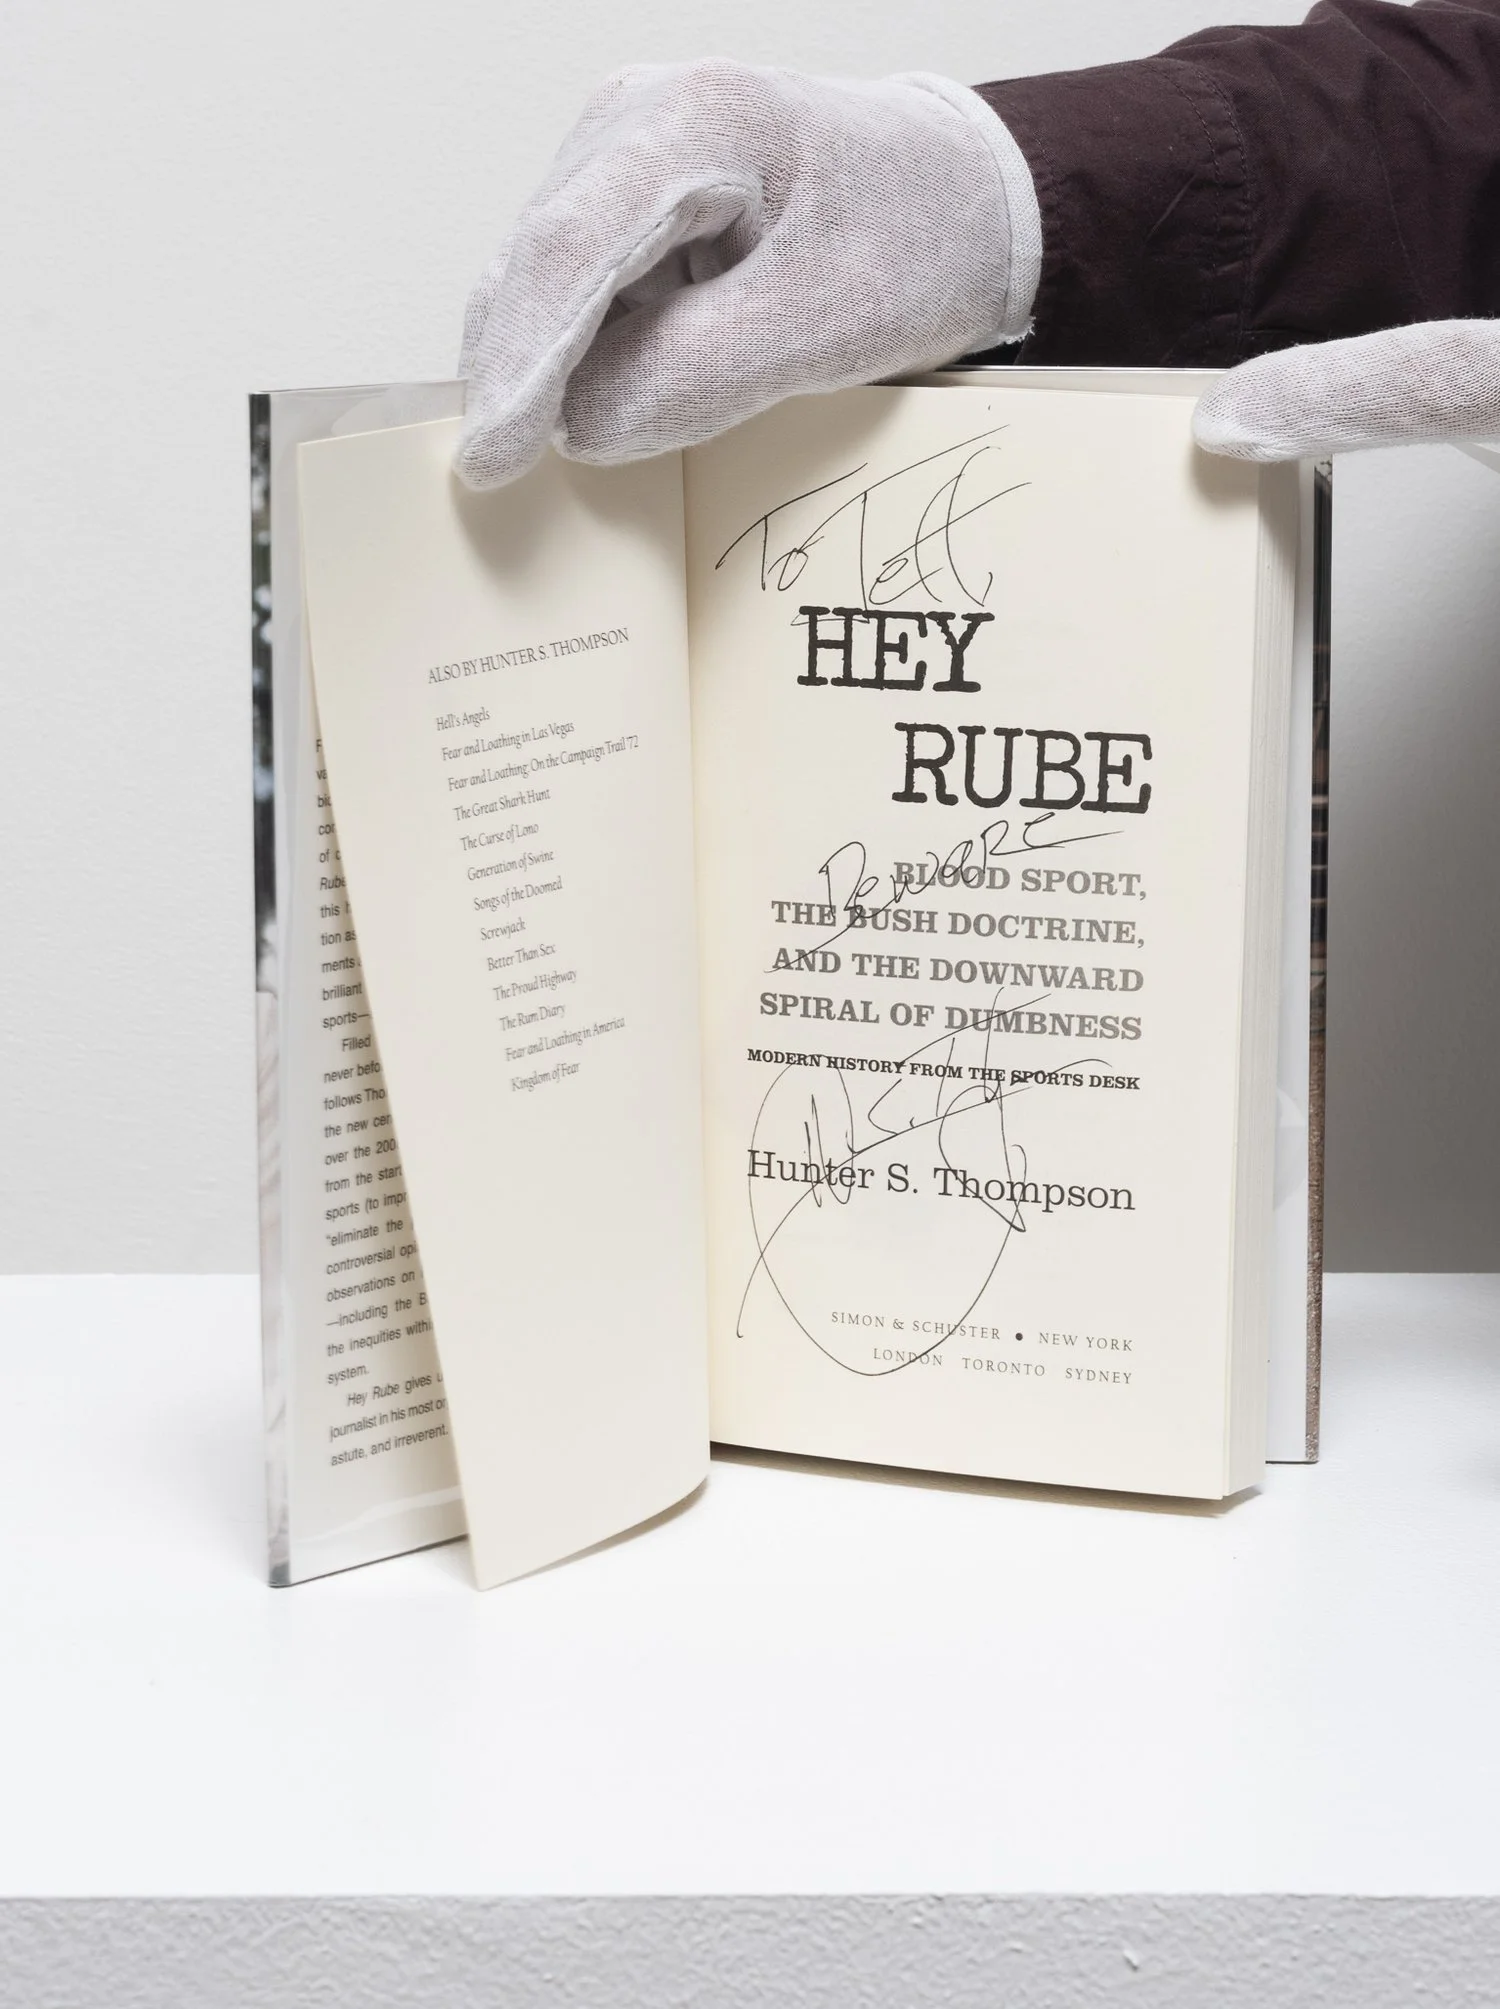 ALSO BY HUNTER S. THOMPSON
Hell's Angels
Fear and Loathing in Las Vegas
Fear and Loathing: On the Campaign Trail '72
The Great Shark Hunt
The Curse of Lono
Generation of Swine
Songs of the Doomed
Screwjack
Better Than Sex
The Proud Highway
The Rum Diary
Fear and Loathing in America
Kingdom of Fear
of
Rube
this
tion as
ments
brilliant
sports—
Filled
never befo
follows Tho
the new cen
over the 200
from the start
sports (to impr
"eliminate the
controversial opi
observations on
—including the B
the inequities withi
system.
Hey Rube gives u
journalist in his most or
astute, and irreverent.
To Jeff,
HEY
RUBE
Beware
BLOOD SPORT,
THE BUSH DOCTRINE,
AND THE DOWNWARD
SPIRAL OF DUMBNESS
MODERN HISTORY FROM THE SPORTS DESK
Hunter S. Thompson
SIMON & SCHUSTER • NEW YORK
LONDON TORONTO SYDNEY